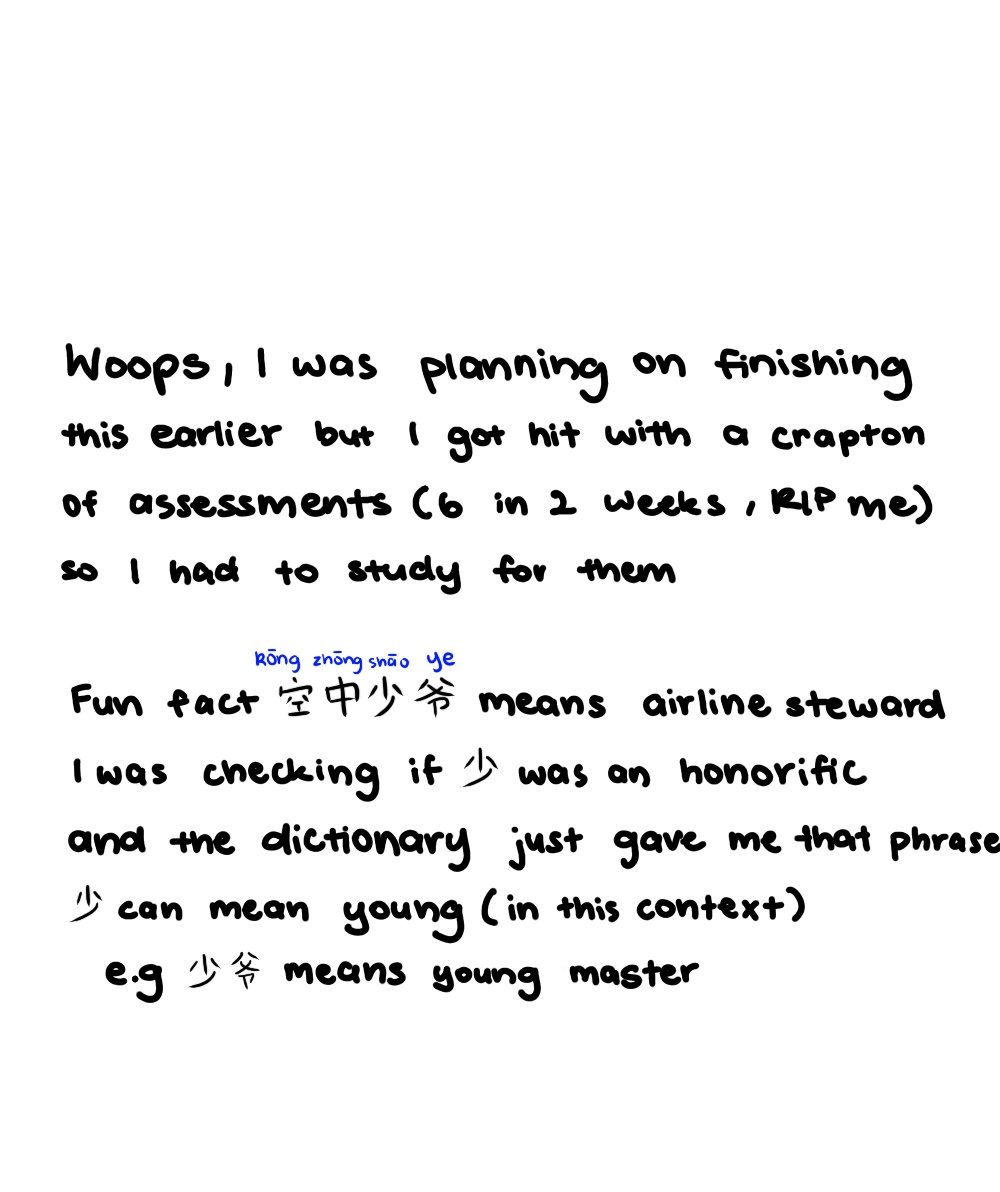 Woops, I was planning on finishing
this earlier but I got hit with a crapton
of assessments (6 in 2 weeks, RIP me)
so I had to study for them
kōng zhōng shāo ye
Fun fact 空中少爷 means airline steward
I was checking if 少 was an honorific
and the dictionary just gave me that phrase
少 can mean young (in this context)
e.g 少爷 means young master